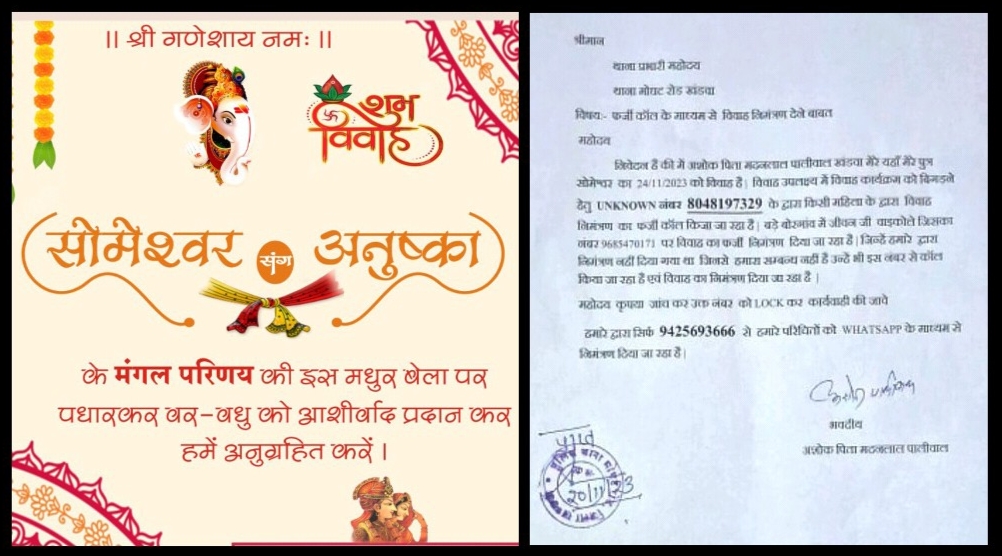 ॥ श्री गणेशाय नमः ॥
शुभ
विवाह
सोमेश्वर संग अनुष्का
के मंगल परिणय की इस मधुर बेला पर
पधारकर वर-वधु को आशीर्वाद प्रदान कर
हमें अनुग्रहित करें ।
श्रीमान
थाना प्रभारी महोदय
थाना मोघट रोड खंडवा
विषय:- फर्जी कॉल के माध्यम से विवाह निमंत्रण देने बाबत
महोदय
निवेदन है की में अशोक पिता मदनलाल पालीवाल खंडवा मेरे यहाँ मेरे पुत्र
सोमेश्वर का 24/11/2023 को विवाह है | विवाह उपलक्ष्य में विवाह कार्यक्रम को बिगड़ने
हेतु UNKNOWN नंबर 8048197329 के द्वारा किसी महिला के द्वारा विवाह
निमंत्रण का फर्जी कॉल किजा जा रहा है | बड़े बोरगांव में जीवन जी वाइकोले जिसका
नंबर 9685470171 पर विवाह का फर्जी निमंत्रण दिया जा रहा है | जिन्हें हमारे द्वारा
निमंत्रण नहीं दिया गया था जिनसे हमारा सम्बन्ध नहीं है उन्हें भी इस नंबर से कॉल
किया जा रहा है एवं विवाह का निमंत्रण दिया जा रहा है |
महोदय कृपया जांच कर उक्त नंबर को LOCK कर कार्यवाही की जावे
हमारे द्वारा सिर्फ 9425693666 से हमारे परिचितों को WHATSAPP के माध्यम से
निमंत्रण दिया जा रहा है |
भवदीय
अशोक पिता मदनलाल पालीवाल